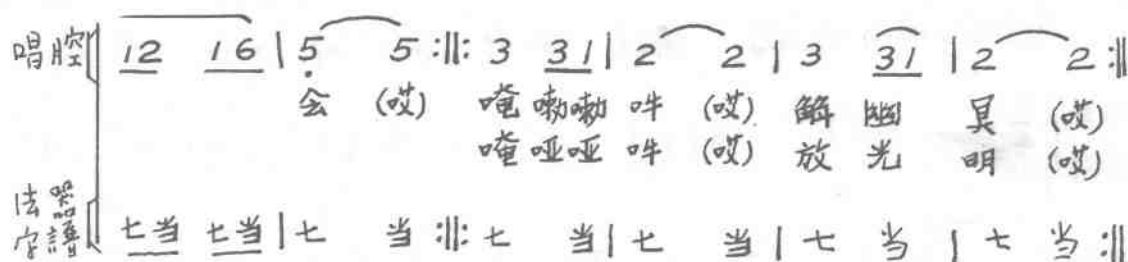 唱腔 12 16 | 5 5 :||: 3 31 | 2 2 | 3 31 | 2 2 :||
会 (哎) 唵 嘞嘞 吽 (哎) 解 幽 冥 (哎)
唵 哑哑 吽 (哎) 放 光 明 (哎)
法器字譜 七当 七当 | 七 当 :||: 七 当 | 七 当 | 七 当 | 七 当 :||